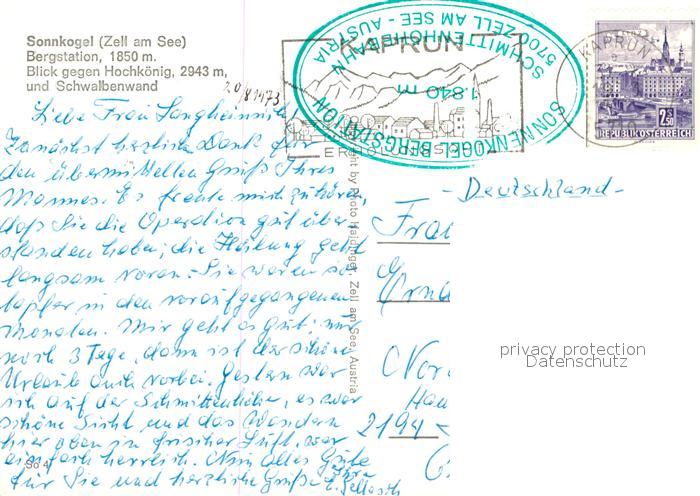 Sonnkogel (Zell am See)
Bergstation, 1850 m.
Blick gegen Hochkönig, 2943 m,
und Schwalbenwand
20/8 1973
KAPRUN
SONNENKOGEL-BERGSTATION
1.840 m
SCHMITTENHÖHEBAHN
5700 ZELL AM SEE - AUSTRIA
KAPRUN
2.50
REPUBLIK ÖSTERREICH
Liebe Frau
Zunächst herzlichen Dank für
den übermittelten Gruß Ihres
Mannes. Es freute mich zu hören,
daß Sie die Operation gut über
standen haben; die Heilung geht
langsam voran. Sie waren so
tapfer in den voraufgegangenen
Monaten. Mir geht es gut; nur
noch 3 Tage, dann ist der schöne
Urlaub auch vorbei. Gestern war
ich auf der Schmittenhöhe, es war
schöne Sicht und das Wandern
hier oben in frischer Luft, war
einfach herrlich. Nun alles Gute
für Sie und herzliche Grüße Ihre
- Deutschland -
Frau
Erna
2194
privacy protection
Datenschutz
Zell am See, Austria
So 4